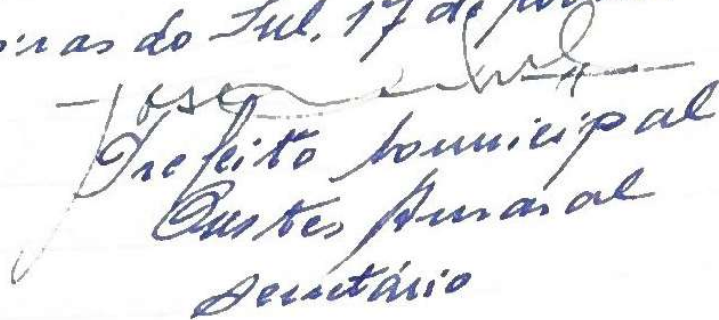 iras do Sul, 17 de
José
Prefeito Municipal
Amaral
Secretário